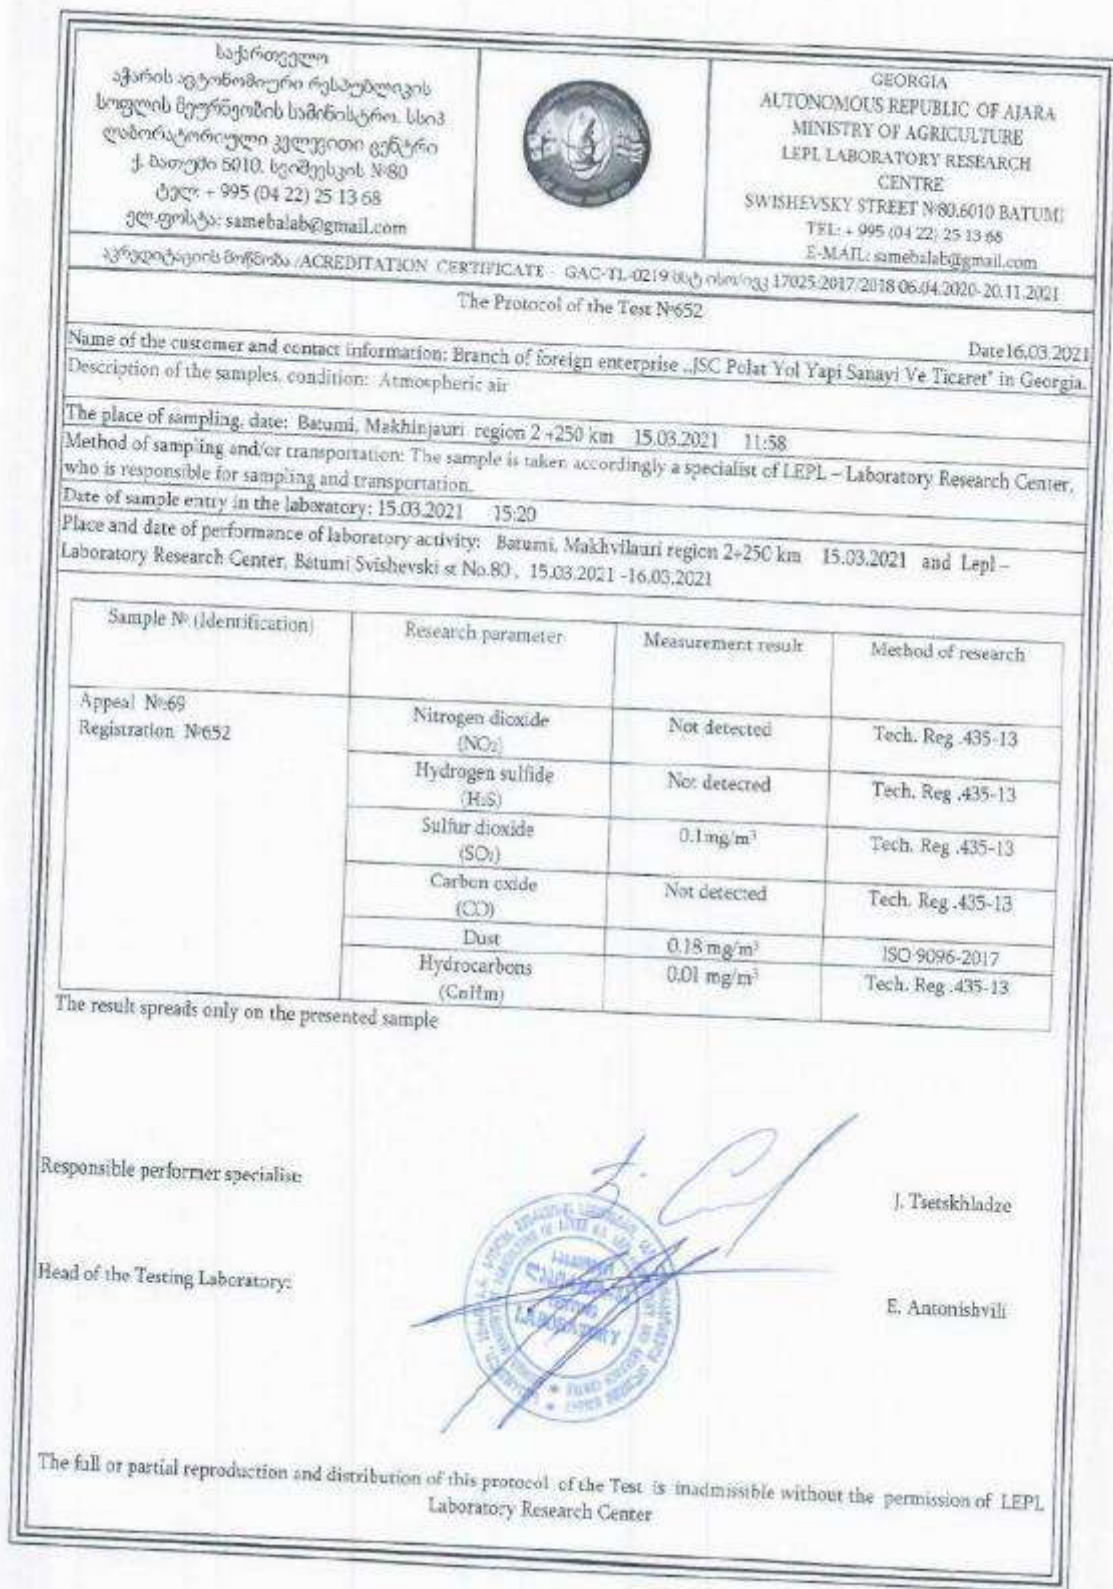 საქართველო
აჭარის ავტონომიური რესპუბლიკის
სოფლის მეურნეობის სამინისტრო. სსიპ
ლაბორატორიული კვლევითი ცენტრი
ქ. ბათუმი 6010. სვიშევსკის №80
ტელ: + 995 (04 22) 25 13 68
ელ.ფოსტა: samebalab@gmail.com
GEORGIA
AUTONOMOUS REPUBLIC OF AJARA
MINISTRY OF AGRICULTURE
LEPL LABORATORY RESEARCH
CENTRE
SWISHEVSKY STREET №80.6010 BATUMI
TEL: + 995 (04 22) 25 13 68
E-MAIL: samebalab@gmail.com
აკრედიტაციის მოწმობა /ACREDITATION CERTIFICATE - GAC-TL-0219 სსტ ისო/იეკ 17025:2017/2018 06.04.2020-20.11.2021
The Protocol of the Test №652
Date16.03.2021
Name of the customer and contact information: Branch of foreign enterprise „JSC Polat Yol Yapi Sanayi Ve Ticaret" in Georgia.
Description of the samples, condition: Atmospheric air
The place of sampling, date: Batumi, Makhinjauri region 2+250 km 15.03.2021 11:58
Method of sampling and/or transportation: The sample is taken accordingly a specialist of LEPL – Laboratory Research Center,
who is responsible for sampling and transportation.
Date of sample entry in the laboratory: 15.03.2021 15:20
Place and date of performance of laboratory activity: Batumi, Makhvilauri region 2+250 km 15.03.2021 and Lepl –
Laboratory Research Center, Batumi Svishevski st No.80 , 15.03.2021 -16.03.2021
Sample № (Identification) Research parameter Measurement result Method of research
Appeal №69
Registration №652
Nitrogen dioxide
(NO₂)
Not detected Tech. Reg .435-13
Hydrogen sulfide
(H₂S)
Not detected Tech. Reg .435-13
Sulfur dioxide
(SO₂)
0.1mg/m³ Tech. Reg .435-13
Carbon oxide
(CO)
Not detected Tech. Reg .435-13
Dust 0.18 mg/m³ ISO 9096-2017
Hydrocarbons
(CnHm)
0.01 mg/m³ Tech. Reg .435-13
The result spreads only on the presented sample
Responsible performer specialist:
J. Tsetskhladze
Head of the Testing Laboratory:
E. Antonishvili
TESTING
LABORATORY
The full or partial reproduction and distribution of this protocol of the Test is inadmissible without the permission of LEPL
Laboratory Research Center